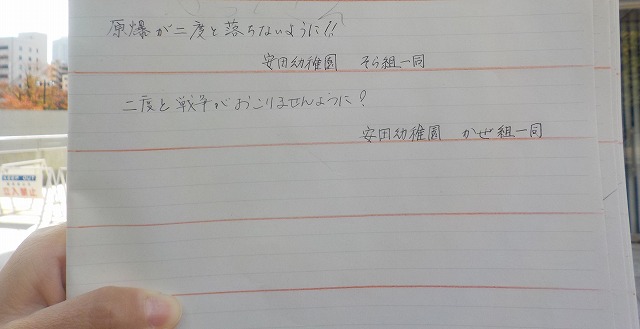 原爆が二度と落ちないように!!
安田幼稚園 そら組一同
二度と戦争がおこりませんように?
安田幼稚園 かぜ組一同
KEEP OUT